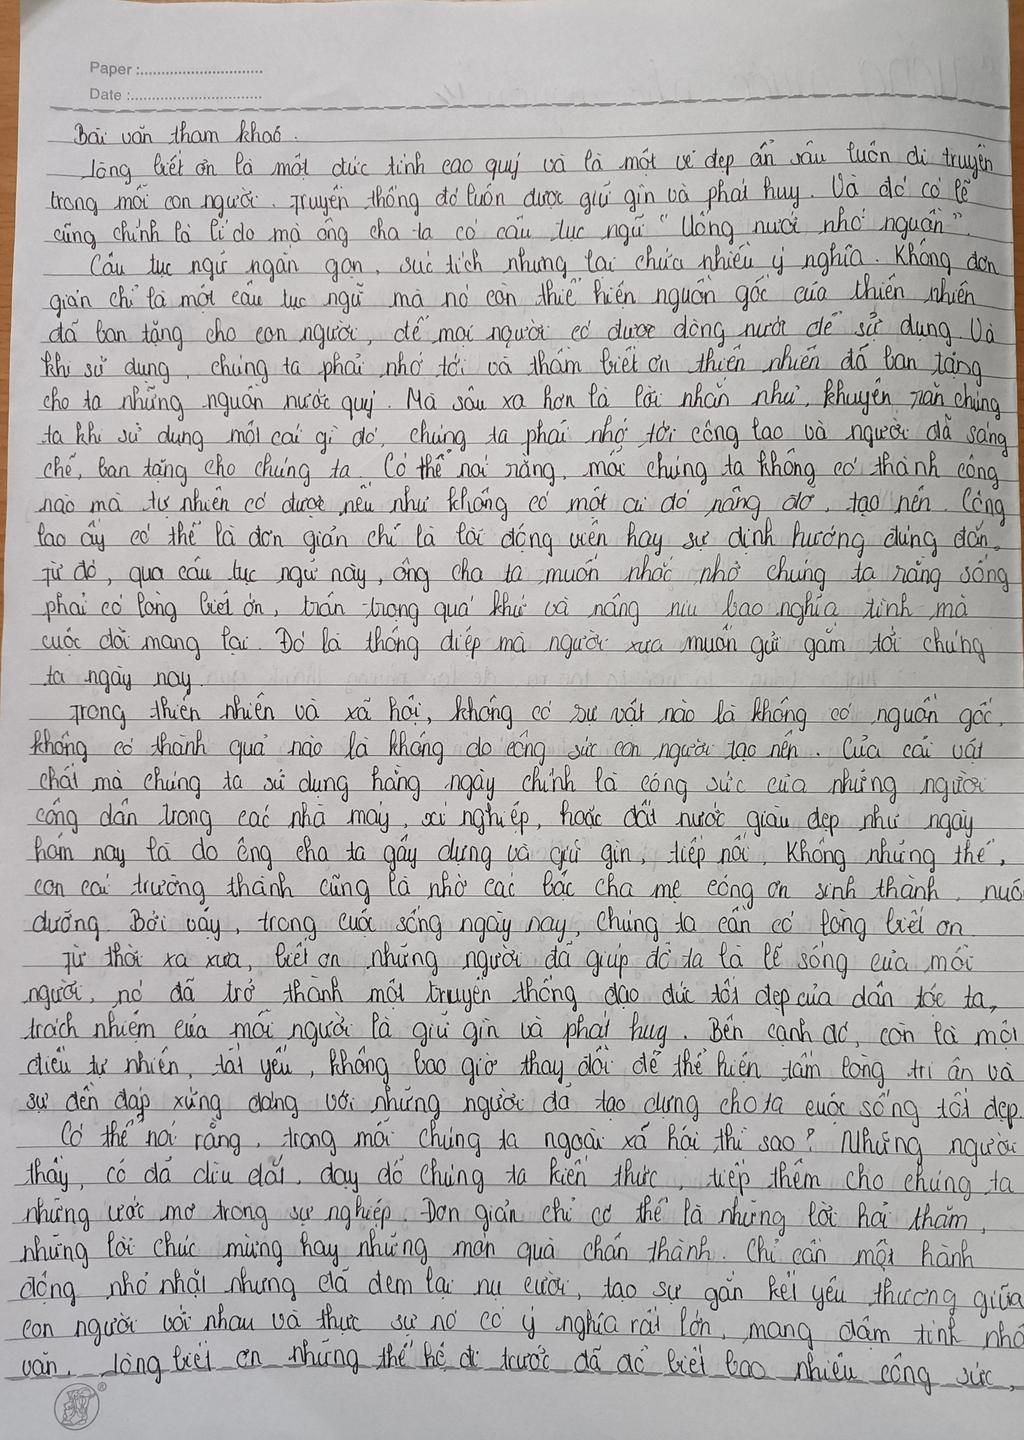 Paper :..............................
Date :................................
Bài văn tham khảo.
Lòng biết ơn là một đức tính cao quý và là một vẻ đẹp ẩn sâu luôn di truyền
trong mỗi con người. Truyền thống đó luôn được giữ gìn và phát huy. Và đó có lẽ
cũng chính là lí do mà ông cha ta có câu tục ngữ "Uống nước nhớ nguồn".
Câu tục ngữ ngắn gọn, súc tích nhưng lại chứa nhiều ý nghĩa. Không đơn
giản chỉ là một câu tục ngữ mà nó còn thể hiện nguồn gốc của thiên nhiên
đã ban tặng cho con người, để mọi người có được dòng nước để sử dụng. Và
khi sử dụng, chúng ta phải nhớ tới và thầm biết ơn thiên nhiên đã ban tặng
cho ta những nguồn nước quý. Mà sâu xa hơn là lời nhắn nhủ, khuyên răn chúng
ta khi sử dụng một cái gì đó, chúng ta phải nhớ tới công lao và người đã sáng
chế, ban tặng cho chúng ta. Có thể nói rằng, mỗi chúng ta không có thành công
nào mà tự nhiên có được nếu như không có một ai đó nâng đỡ, tạo nên. Công
lao ấy có thể là đơn giản chỉ là lời động viên hay sự định hướng đúng đắn.
Từ đó, qua câu tục ngữ này, ông cha ta muốn nhắc nhở chúng ta rằng sống
phải có lòng biết ơn, trân trọng quá khứ và nâng niu bao nghĩa tình mà
cuộc đời mang lại. Đó là thông điệp mà người xưa muốn gửi gắm tới chúng
ta ngày nay.
Trong thiên nhiên và xã hội, không có sự vật nào là không có nguồn gốc,
không có thành quả nào là không do công sức con người tạo nên. Của cải vật
chất mà chúng ta sử dụng hằng ngày chính là công sức của những người
công dân trong các nhà máy, xí nghiệp, hoặc đất nước giàu đẹp như ngày
hôm nay là do ông cha ta gây dựng và giữ gìn, tiếp nối. Không những thế,
con cái trưởng thành cũng là nhờ các bậc cha mẹ công ơn sinh thành, nuô
dưỡng. Bởi vậy, trong cuộc sống ngày nay, chúng ta cần có lòng biết ơn.
Từ thời xa xưa, biết ơn những người đã giúp đỡ ta là lẽ sống của mỗi
người, nó đã trở thành một truyền thống đạo đức tốt đẹp của dân tộc ta,
trách nhiệm của mỗi người là giữ gìn và phát huy. Bên cạnh đó, còn là một
điều tự nhiên, tất yếu, không bao giờ thay đổi để thể hiện tấm lòng tri ân và
sự đền đáp xứng đáng với những người đã tạo dựng cho ta cuộc sống tốt đẹp.
Có thể nói rằng, trong mỗi chúng ta ngoài xã hội thì sao? Những người
thầy, cô đã dìu dắt, dạy dỗ chúng ta kiến thức, tiếp thêm cho chúng ta
những ước mơ trong sự nghiệp. Đơn giản chỉ có thể là những lời hỏi thăm,
những lời chúc mừng hay những món quà chân thành. Chỉ cần một hành
động nhỏ nhặt nhưng đã đem lại nụ cười, tạo sự gắn kết yêu thương giữa
con người với nhau và thực sự nó có ý nghĩa rất lớn, mang đậm tính nhâ
văn. Lòng biết ơn những thế hệ đi trước đã đổ biết bao nhiêu công sức,